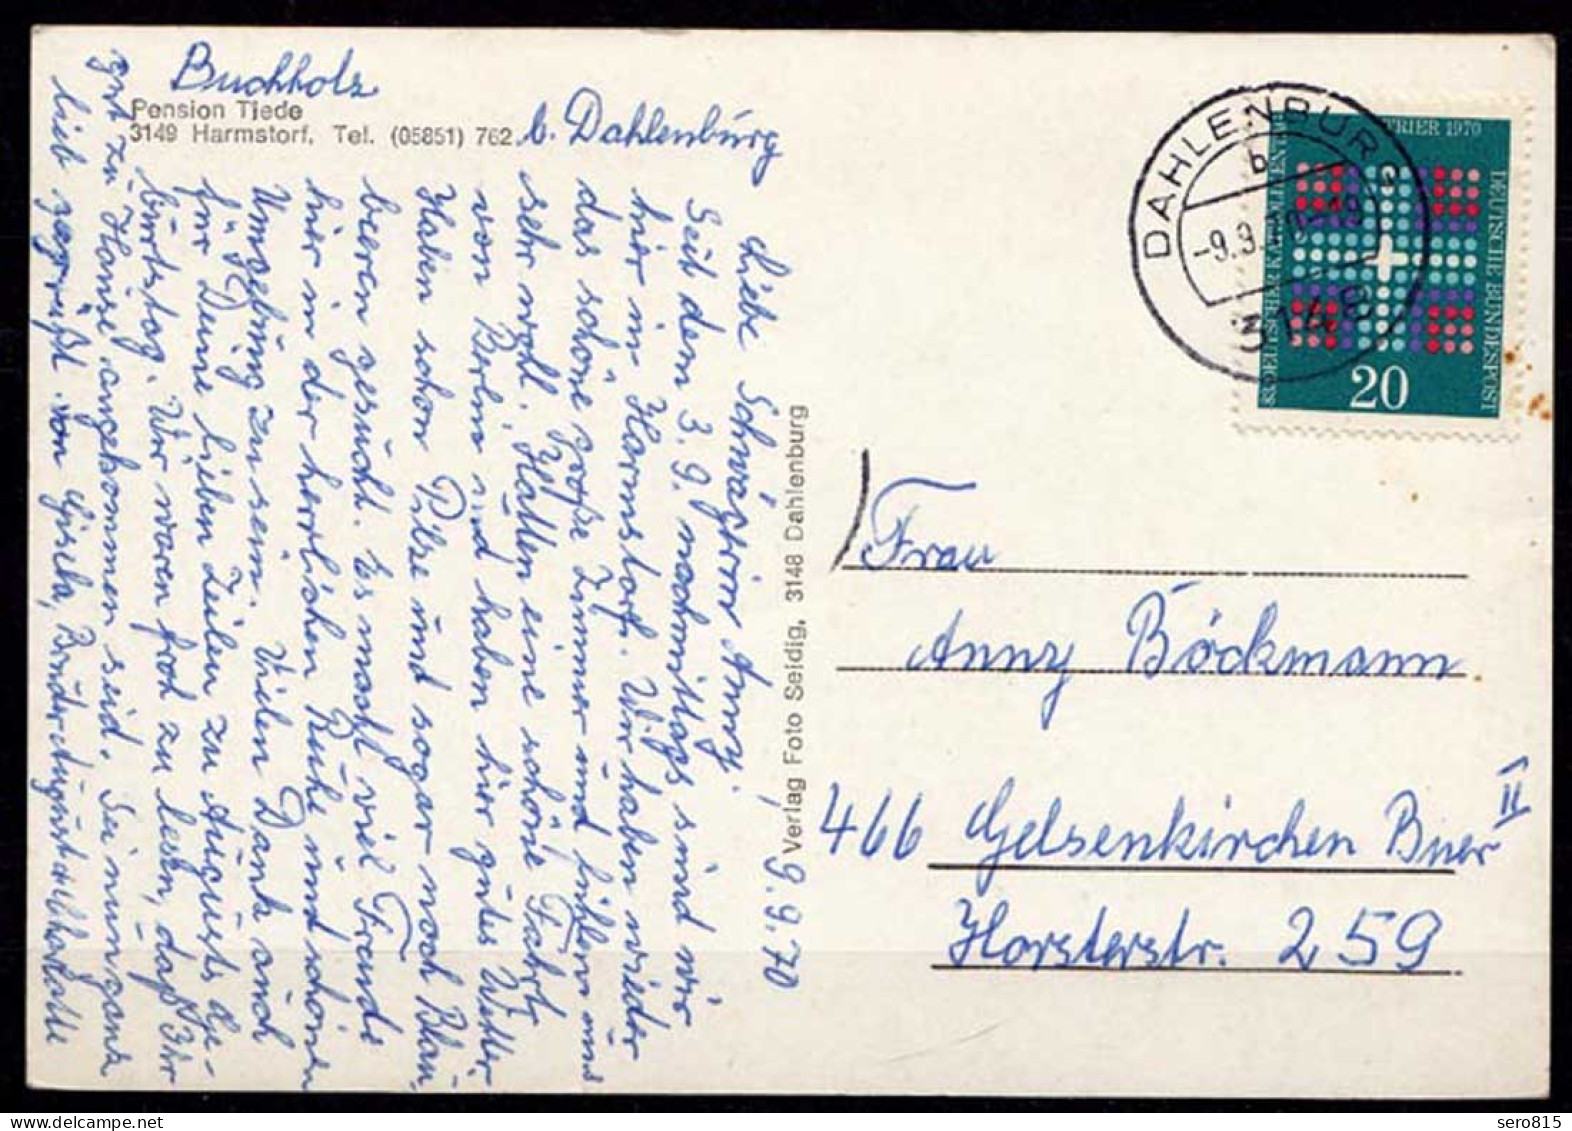 Buchholz
Pension Tiede
3149 Harmstorf, Tel. (05851) 762
b. Dahlenburg
9.9.70
Liebe Schwägerin Anny,
Seit dem 3.9. nachmittags sind wir
hier in Harmstorf. Wir haben wieder
das schöne große Zimmer und fühlen uns
sehr wohl. Hatten eine schöne Fahrt
von Berlin und haben hier gutes Wetter.
Haben schon Pilze und sogar noch Blau-
beeren gesucht. Es macht viel Freude
hier in der herrlichen Ruhe und schönen
Umgebung zu sein. Vielen Dank auch
für Deine lieben Zeilen zu Augusts Ge-
burtstag. Wir waren froh zu lesen, daß Ihr
gut zu Hause angekommen seid. Sei nun ganz
lieb gegrüßt von Gisela, Bruder August
Verlag Foto Seidig, 3148 Dahlenburg
DAHLENBURG
b
-9.9.70-19
3148
83. DEUTSCHER KATHOLIKENTAG TRIER 1970
DEUTSCHE BUNDESPOST
20
Frau
Anny Böckmann
466 Gelsenkirchen Buer II
Horsterstr. 259
sero815